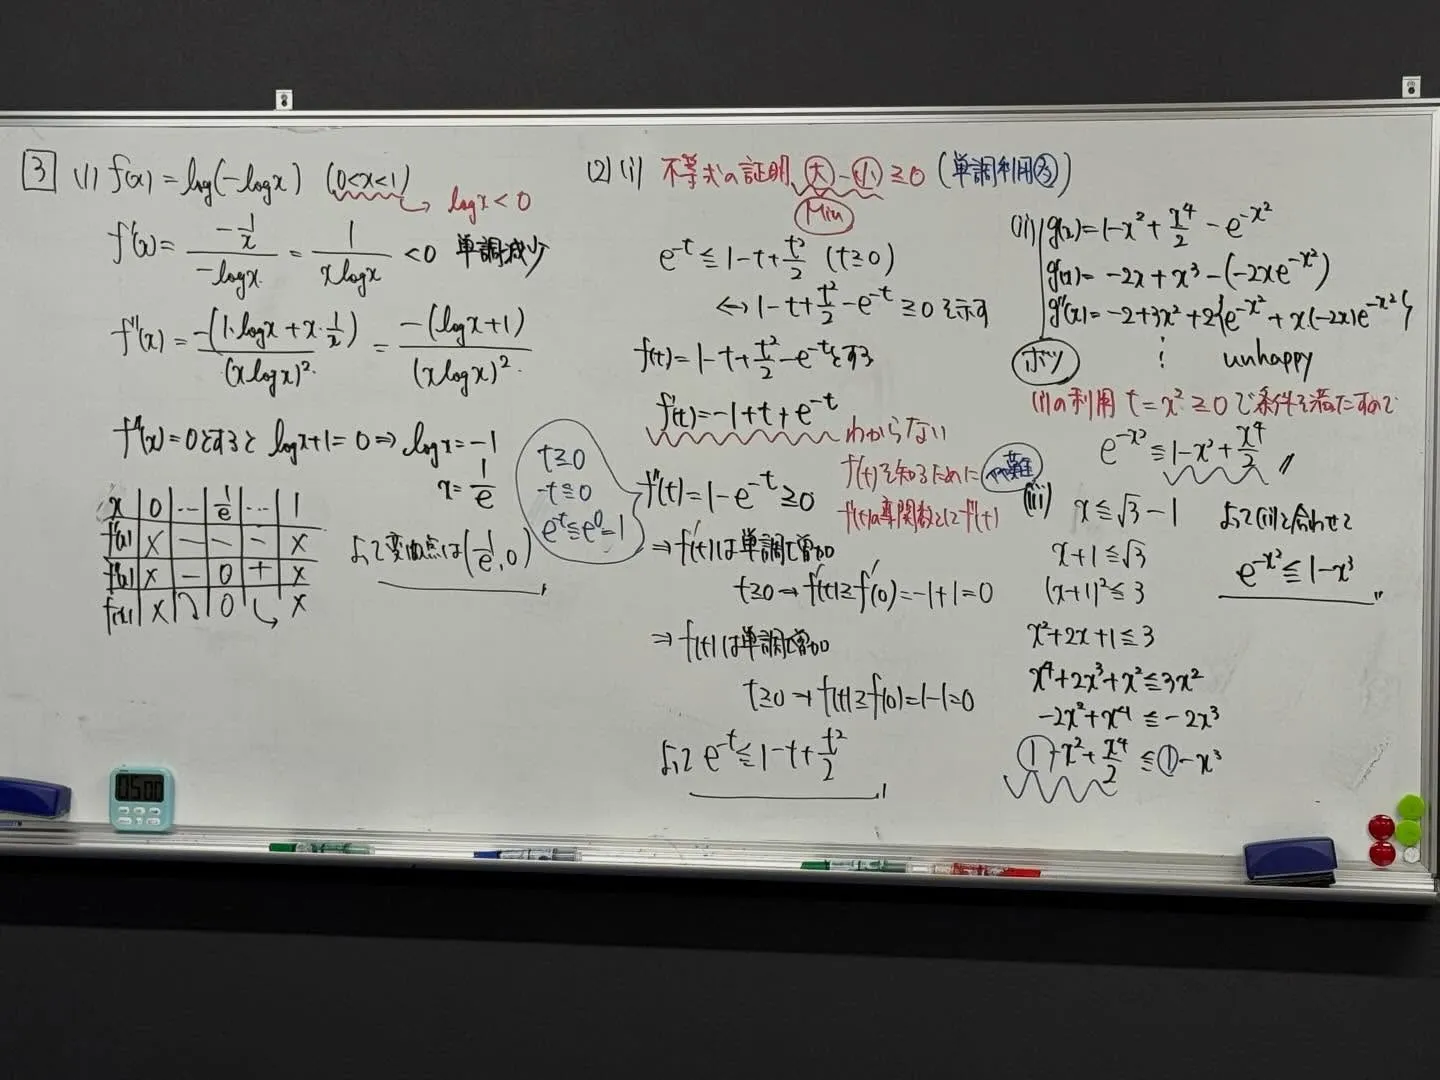 3 (1) f(x) = log(-logx) (0<x<1)
logx < 0
f'(x) = (-1/x)/(-logx) = 1/(xlogx) < 0 単調減少
f''(x) = -(1・logx + x・1/x)/(xlogx)² = -(logx+1)/(xlogx)²
f''(x)=0とすると logx+1=0 ⇒ logx=-1
x=1/e
x | 0 | … | 1/e | … | 1
f'(x) | × | − | − | − | ×
f''(x) | × | − | 0 | + | ×
f(x) | × | ⤵ | 0 | ⤷ | ×
よって変曲点は(1/e, 0)
(2)(i) 不等式の証明 大-小≧0 (単調利用②)
Min
e^-t ≦ 1-t+t²/2 (t≧0)
↔ 1-t+t²/2-e^-t ≧0を示す
f(t)=1-t+t²/2-e^-tとする
f'(t)=-1+t+e^-t
わからない
f'(t)を知るために
難
f'(t)の導関数として f''(t)
t≧0
-t≦0
e^-t≦e^0=1
f''(t)=1-e^-t≧0
⇒f'(t)は単調増加
t≧0→f'(t)≧f'(0)=-1+1=0
⇒f(t)は単調増加
t≧0→f(t)≧f(0)=1-1=0
よってe^-t≦1-t+t²/2
(ii) g(x)=1-x²+x⁴/2-e^-x²
g'(x)=-2x+x³-(-2xe^-x²)
g''(x)=-2+3x²+2{e^-x²+x(-2x)e^-x²}
ボツ ⋮ unhappy
(i)の利用 t=x²≧0で条件を満たすので
e^-x²≦1-x²+x⁴/2
(iii) x≦√3-1
x+1≦√3
(x+1)²≦3
x²+2x+1≦3
x⁴+2x³+x²≦3x²
-2x²+x⁴≦-2x³
1-x²+x⁴/2≦1-x³
よって(ii)と合わせて
e^-x²≦1-x³
0500